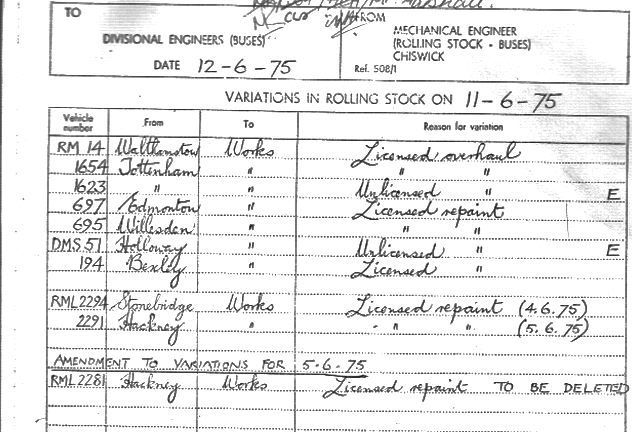 TO
DIVISIONAL ENGINEERS (BUSES)
DATE 12-6-75
FROM
MECHANICAL ENGINEER
(ROLLING STOCK - BUSES)
CHISWICK
Ref. 508/1
VARIATIONS IN ROLLING STOCK ON 11-6-75
Vehicle number From To Reason for variation
RM 14 Walthamstow Works Licensed overhaul
1654 Tottenham " " "
1623 " " Unlicensed " E
697 Edmonton " Licensed repaint
695 Willesden " " "
DMS.51 Holloway " Unlicensed " E
194 Bexley " Licensed "
RML2294 Stonebridge Works Licensed repaint (4.6.75)
2291 Hackney " " " (5.6.75)
AMENDMENT TO VARIATIONS FOR 5-6-75
RML2281 Hackney Works Licensed repaint TO BE DELETED